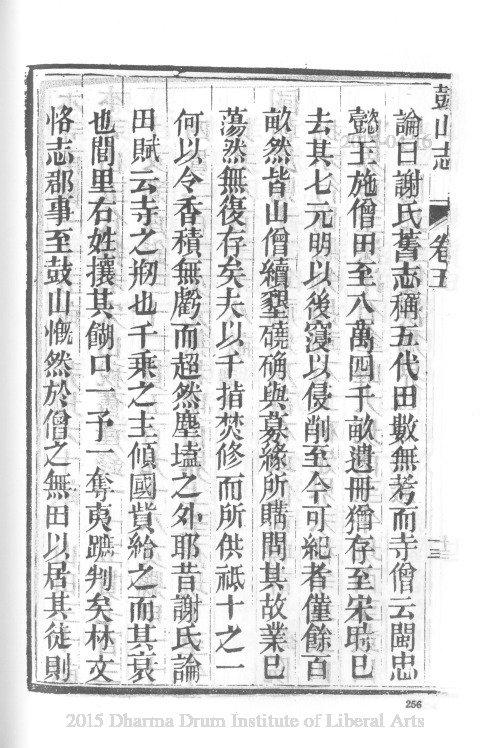 鼓山志
卷五
十三
論曰謝氏舊志稱五代田數無考而寺僧云閩忠
懿王施僧田至八萬四千畝遺冊猶存至宋時已
去其七元明以後寖以侵削至今可紀者僅餘百
畝然皆山僧續墾磽确與募緣所購問其故業已
蕩然無復存矣夫以千指焚修而所供祗十之一
何以令香積無虧而超然塵壒之外耶昔謝氏論
田賦云寺之刱也千乘之主傾國貲給之而其衰
也閭里右姓攘其餬口一予一奪夷蹠判矣林文
恪志郡事至鼓山慨然於僧之無田以居其徒則
256
2015 Dharma Drum Institute of Liberal Arts